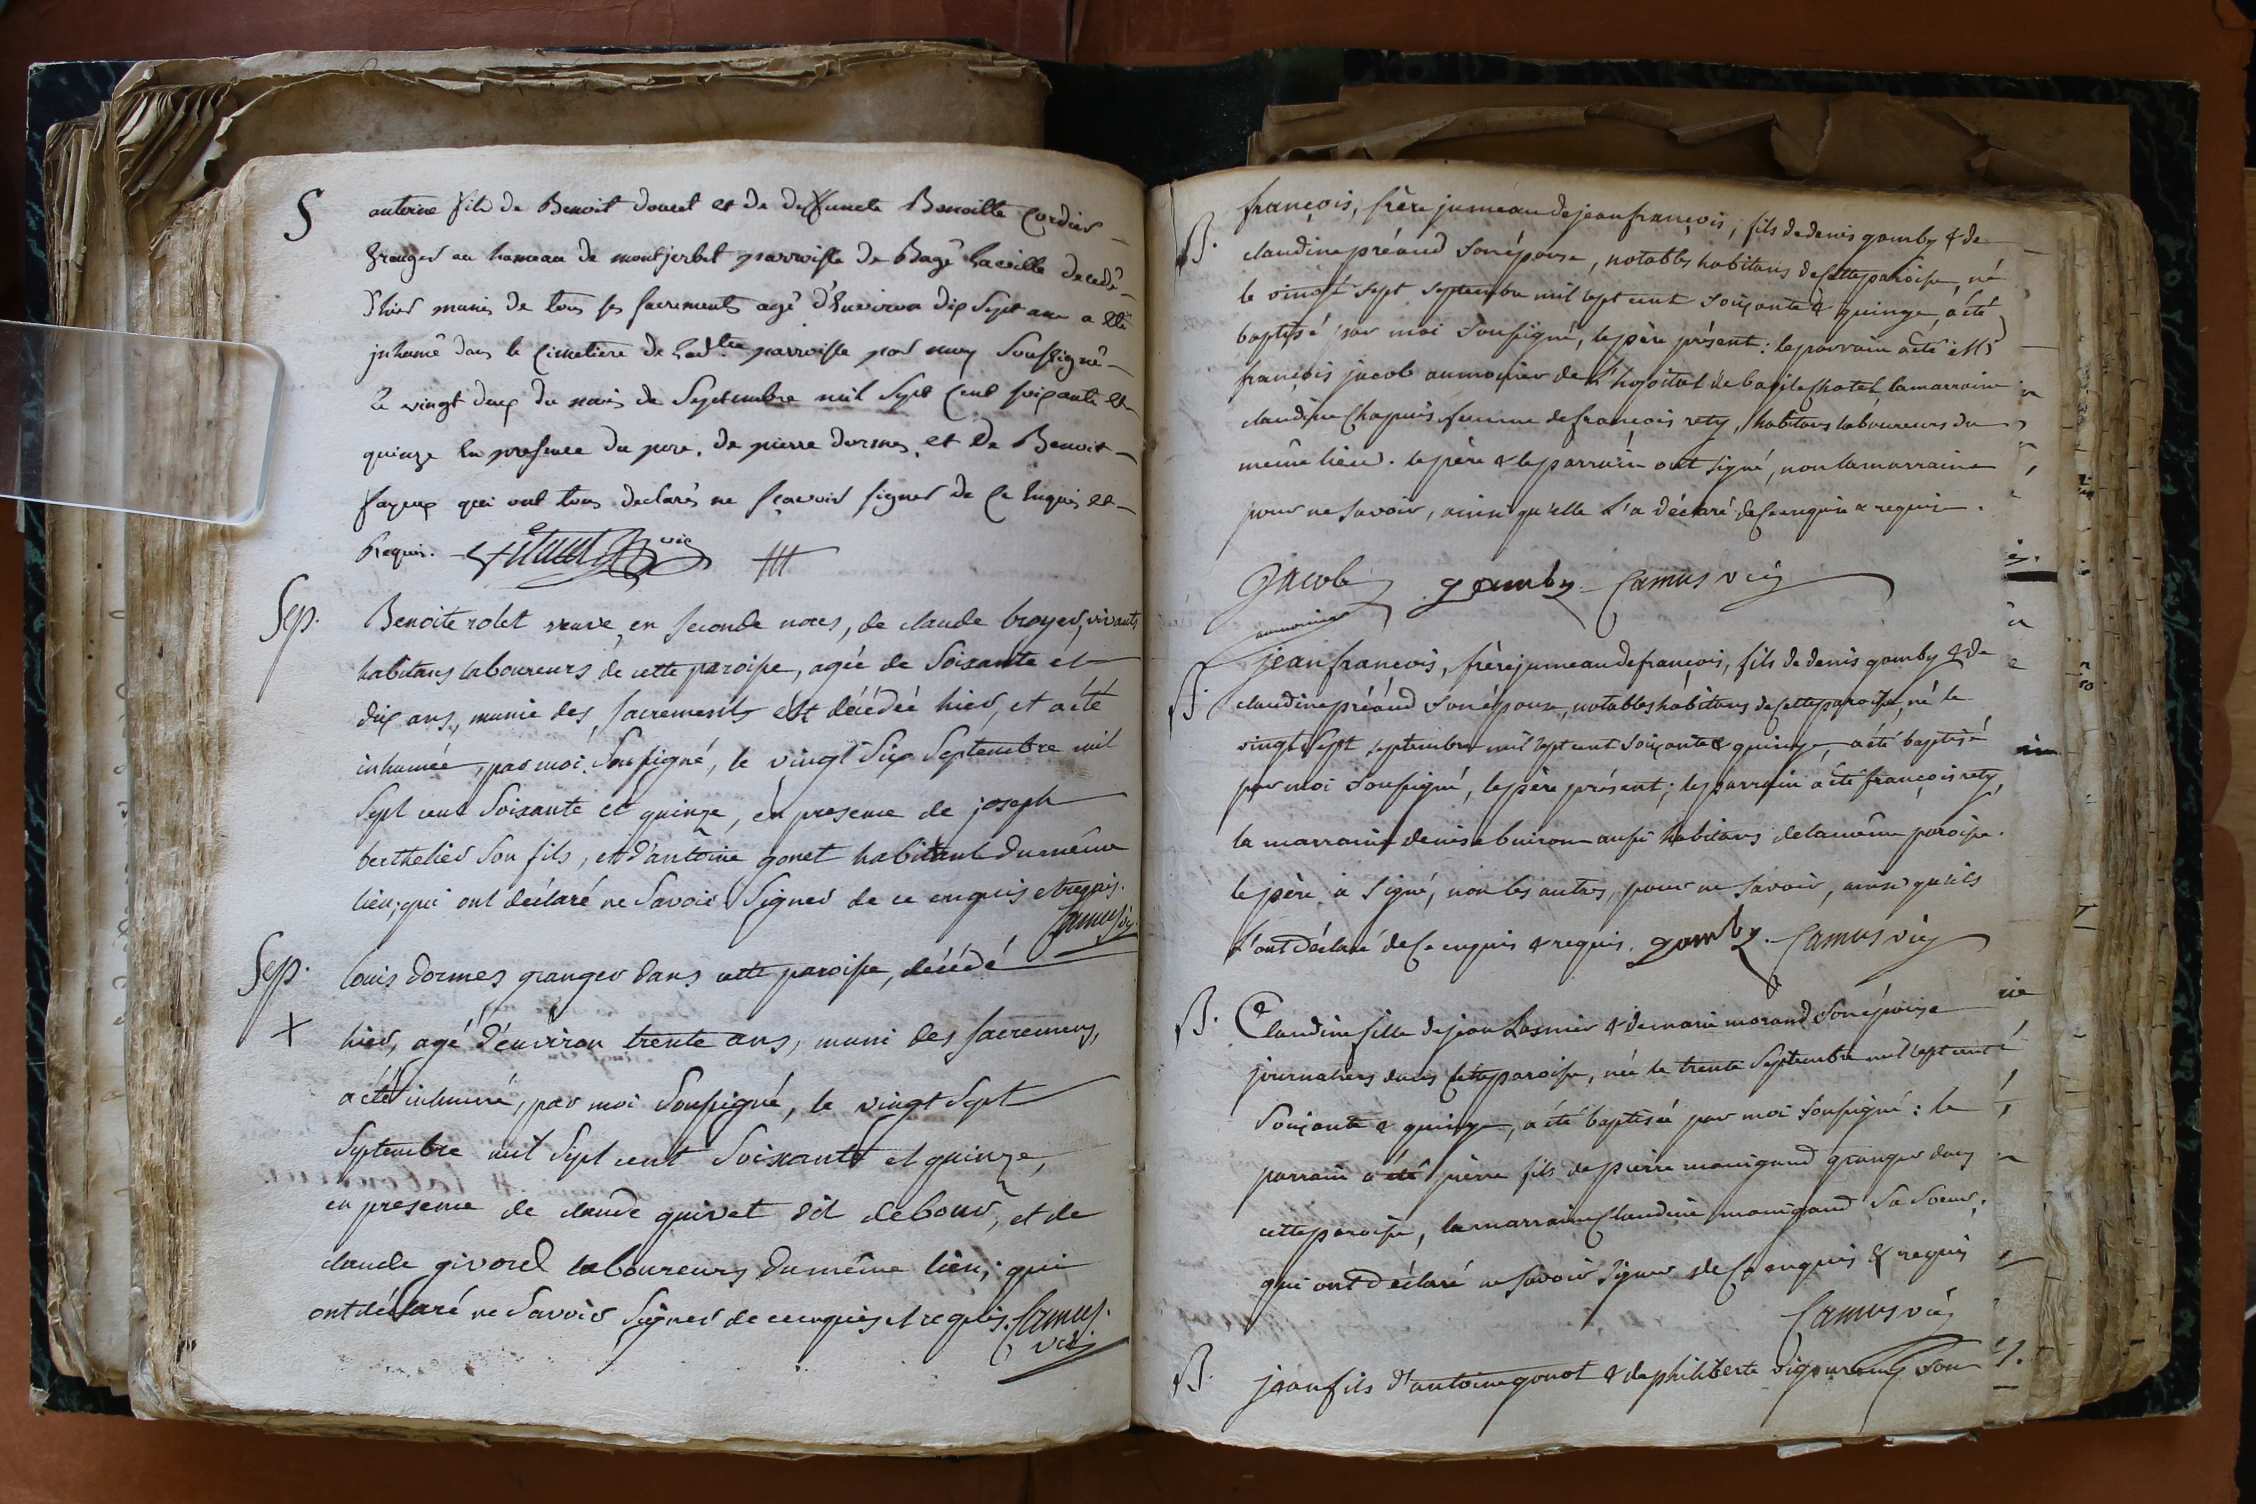 S
antoine fils de Benoit doucet et de deffuncte Benoitte Cordier
Granger au hameau de montjerbet parroisse de Bagé laville decedé
d'hier munis de tous ses sacrements agé d'Environ dix sept ans a eté
inhumé dans le Cimetiere de lad.te parroisse par moy soussigné
Le vingt deux du mois de Septembre mil sept Cent soixante et
quinze En presence du pere, de pierre dormes, et de Benoit
fayeux qui ont tous declarés ne sçavoir signer de Ce Enquis et
Requis. vic
Sep.
Benoite rolet veuve, en seconde noces, de claude broyer, vivants
habitans laboureurs de cette paroisse, agée de soixante et
dix ans, munie des sacrements est décédée hier, et a été
inhumée, par moi soussigné, le vingt six septembre mil
sept cent soixante et quinze, en presence de joseph
berthelier son fils, et d'antoine gonet habitant du même
lieu; qui ont déclaré ne savoir signer de ce enquis et requis.
Camus vic.
Sep.
X
louis dormes granger dans cette paroisse, décédé
hier, agé d'environ trente ans, muni des sacremens,
a été inhumé, par moi soussigné, le vingt sept
septembre mil sept cent soixante et quinze,
en presence de claude guivet dit debour, et de
claude givord laboureurs du même lieu; qui
ont déclaré ne savoir signer de ce enquis et requis. Camus.
vic.
B.
françois, frère jumeau de jean françois, fils de denis gamby & de
claudine préaud son épouse, notables habitans de Cette paroisse, né
le vingt sept septembre mil sept cent soixante & quinze, a été
baptisé par moi soussigné, le père présent: le parrain a été
françois jacob aumonier de l'hopital de bagé le Chatel, la marraine
claudine Chapuis femme de françois rety, habitans laboureurs du
même lieu. le père & le parrain ont signé, non la marraine
pour ne savoir, ainsi qu'elle l'a déclaré de Ce enquise & requise.
Jacob gamby Camus vic
aumonier
B.
jean françois, frère jumeau de françois, fils de denis gamby & de
claudine préaud son épouse, notables habitans de Cette paroisse, né le
vingt sept septembre mil sept cent soixante & quinze, a été baptisé
par moi soussigné, le père présent; le parrain a été françois rety,
la marraine denise buiron aussi habitans de la même paroisse.
le père a signé, non les autres, pour ne savoir, ainsi qu'ils
l'ont déclaré de Ce enquis & requis. gamby. Camus vic
B.
Claudine fille de jean Lasnier & de marie morand son épouse
journaliers dans Cette paroisse, née le trente septembre mil sept cent
soixante & quinze, a été baptisée par moi soussigné: le
parrain a été pierre fils de pierre manigand granger dans
cette paroisse, la marraine Claudine manigand sa soeur,
qui ont déclaré ne savoir signer de Ce enquis & requis
Camus vic
B.
jean fils d'antoine gonot & de philiberte son